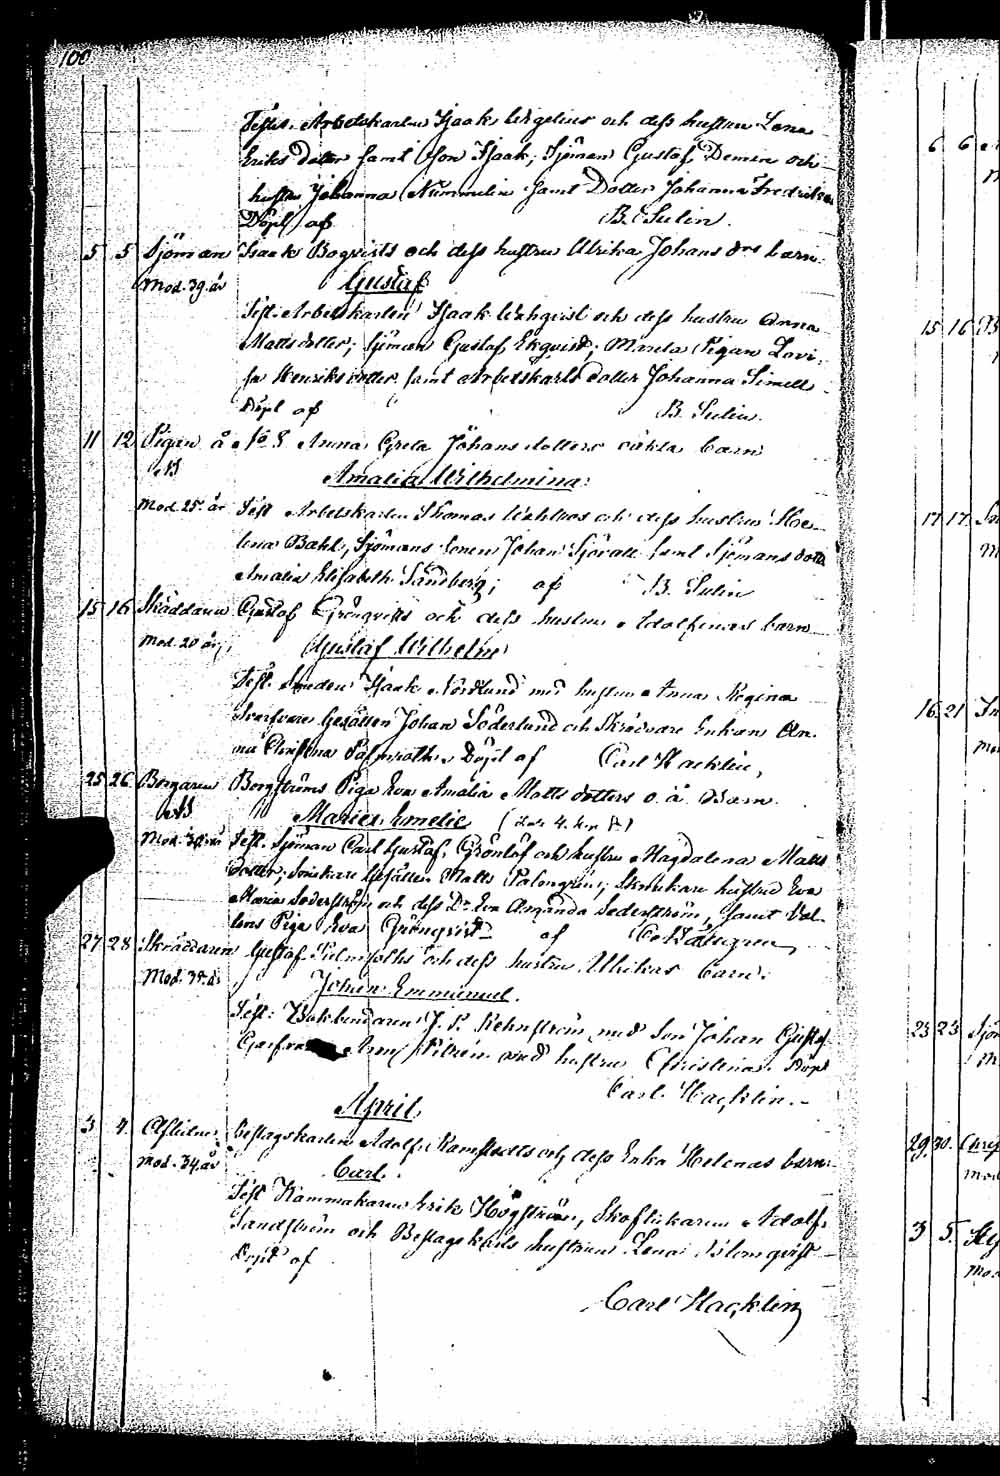 100
Test. Arbetskarlen Isaak Wigelius och dess hustru Lena
Eriks dotter samt Son Isaak, Sjöman Gustaf Demin och
hustru Johanna Nummelin samt Dotter Johanna Fredrika
Döpt af B. Sulin.
5 5 Sjöman Isaak Bogqvists och dess hustru Ulrika Johans drs barn
Mod. 39. år Gustaf
Test. Arbetskarlen Isaak Wehqvist och dess hustru Anna
Matts dotter; Sjöman Gustaf Ekqvist; Pigan Lovi-
sa Henriks dotter samt Arbetskarls dotter Johanna Simell
Döpt af B. Sulin.
11 12 Pigan å No 8 Anna Greta Johans dotters oäkta barn
Amalia Wilhelmina
Mod. 25. år Test Arbetskarlen Thomas Wahlroos och dess hustru He-
lena Bahl, Sjömans Sonen Johan Sjövall samt Sjömans dottr
Amalia Elisabeth Sandberg; af B. Sulin
15 16 Skräddaren Gustaf Grönqvists och dess hustru Adolfinas barn
Mod. 20 år Gustaf Wilhelm
Test. Smeden Isaak Nordlund med hustru Anna Regina
Gesällen Johan Söderlund och Skräddare Enkan An-
na Christina Palmroth. Döpt af Carl Hacklin,
25 26 Borgaren Borgströms Piga Eva Amalia Matts dotters o. ä. Barn
Maria Emelie
Mod. år Test. Sjöman Carl Gustaf Grönlöf och hustru Magdalena Matts
dotter; Gesällen Matts Palongren; hustru Eva
Maria Söderström och dess Dr Eva Amanda Söderström, samt
Piga Eva Grönqvist af
27 28 Skräddaren Gustaf och dess hustru Ulrikas barn
Mod. år Johan Emmanuel.
Test: Bokbindaren J. P. Rehnström med Son Johan Gustaf
med hustru Christina. Döpt
Carl Hacklin.
April
3 4. Aflidne Beslagskarlen Adolf Ramstedts och dess Enka Helenas barn
Mod. 34. år Carl.
Test Kammakaren Erik Högström, Skoflickaren Adolf
Sandström och Beslagskarls hustrun Lena Blomqvist
Döpt af
Carl Hacklin
6 6
15 16
17 17
16 21
23 23 Sjö
29 30.
3 5.